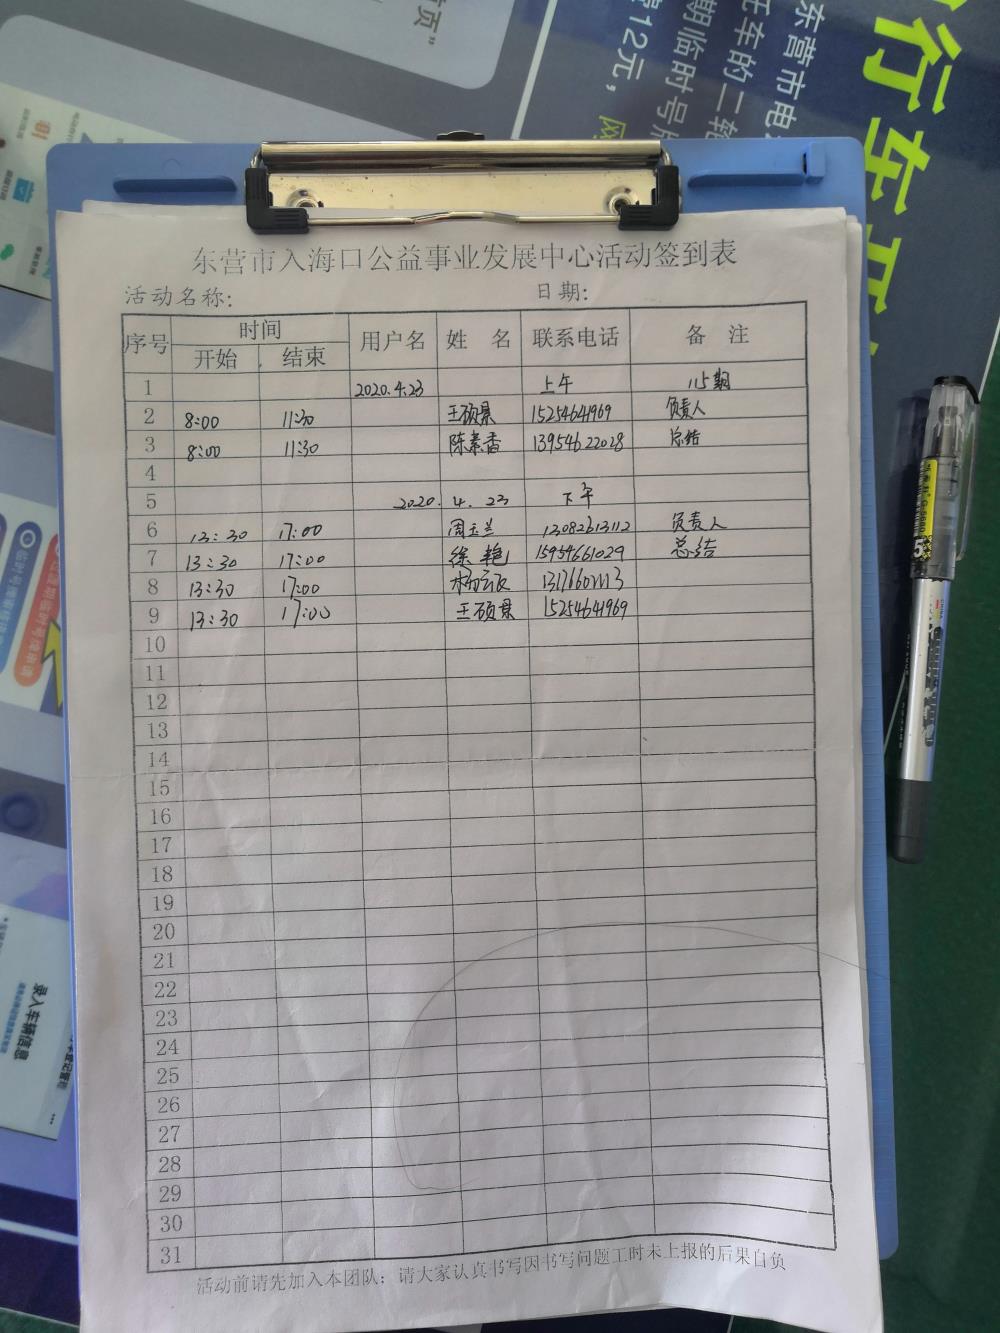 行车
东营市电
托车的二轮
期临时号
12元，网
页”
东营市入海口公益事业发展中心活动签到表
活动名称： 日期：
序号 时间 用户名 姓 名 联系电话 备 注
开始 结束
1 2020.4.23 上午 115期
2 8:00 11:30 王硕景 15254641969 负责人
3 8:00 11:30 陈素香 13954622028 总结
4
5 2020. 4. 23 下午
6 13:30 17:00 周玉兰 13082613112 负责人
7 13:30 17:00 徐艳 15954661029 总结
8 13:30 17:00
9 13:30 17:00 王硕景 15254641969
10
11
12
13
14
15
16
17
18
19
20
21
22
23
24
25
26
27
28
29
30
31
活动前请先加入本团队：请大家认真书写因书写问题工时未上报的后果自负
录入车辆信息